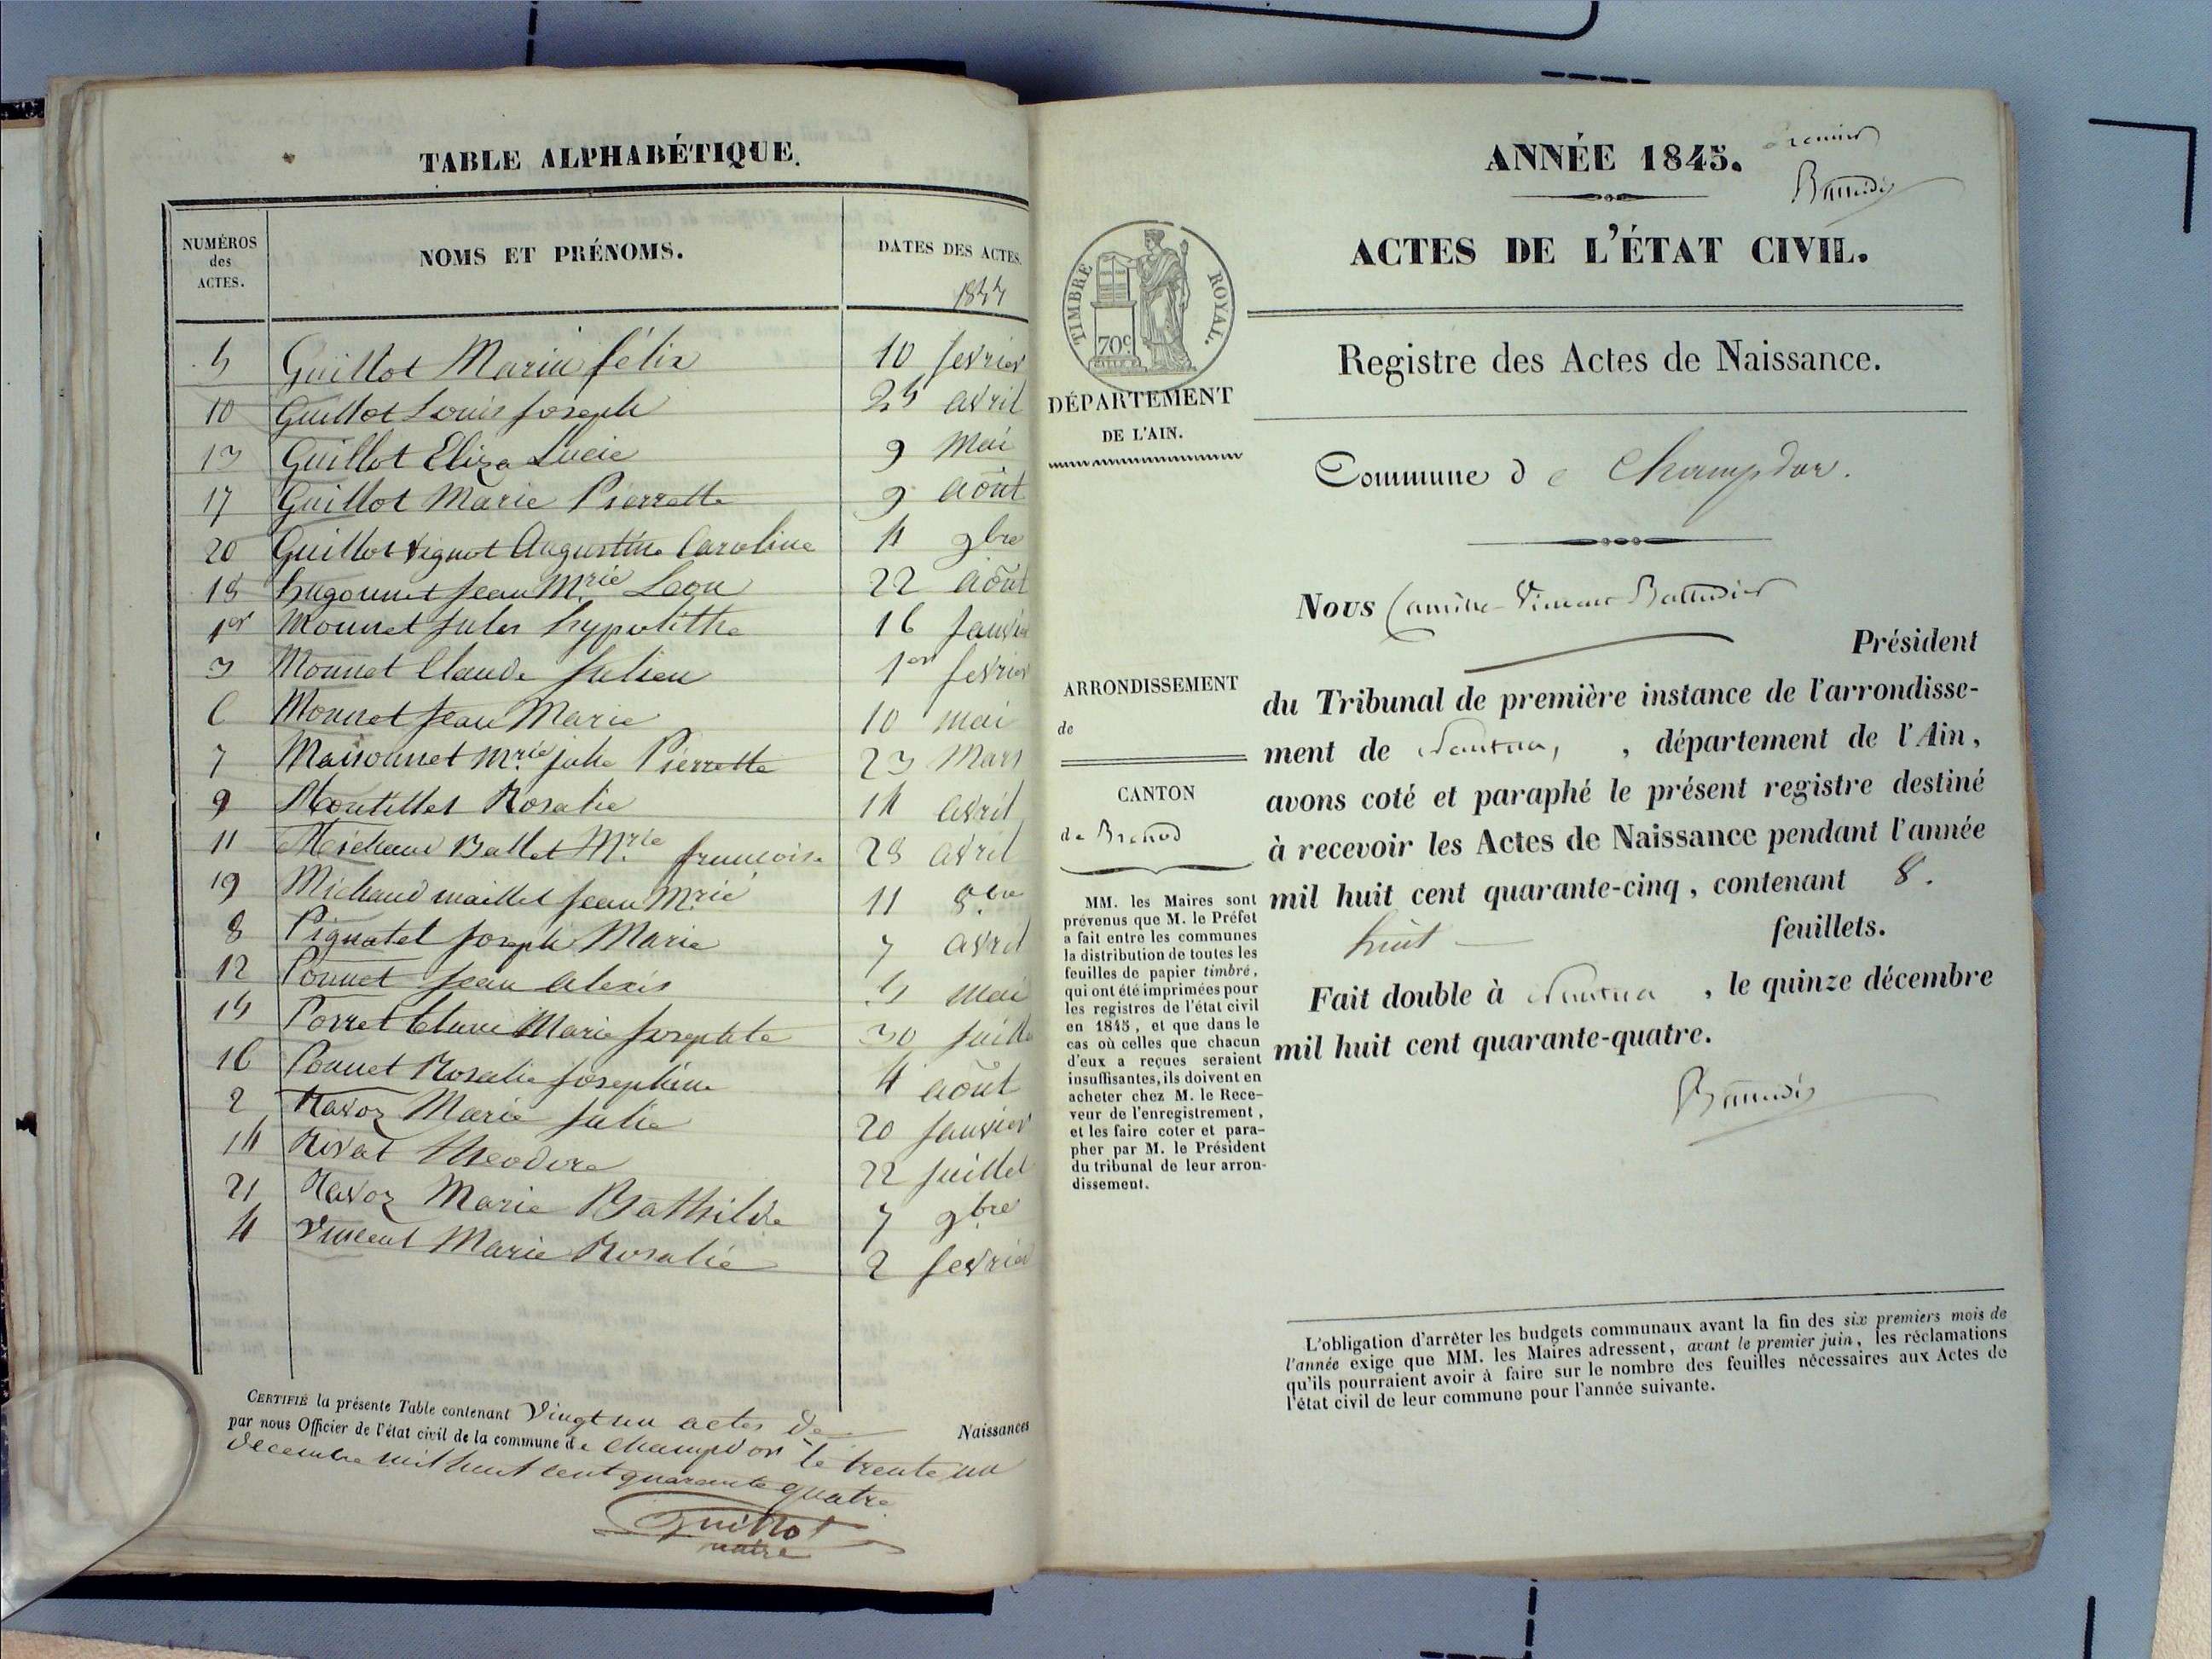 TABLE ALPHABÉTIQUE.
NUMÉROS des ACTES. NOMS ET PRÉNOMS. DATES DES ACTES.
1844
5 Guillot Marin félix 10 fevrier
10 Guillot Louis joseph 25 avril
13 Guillot Eliza Lucie 9 Mai
17 Guillot Marie Pierrette 9 août
20 Guillot Vignot Augustine Caroline 4 9bre
18 hugonnet jean Mrie Leon 22 août
1er Monnet jules hypolithe 16 janvier
3 Monnet Claude julien 1er fevrier
6 Monnet jean Marie 10 mai
7 Maisonnet Mrie julie Pierrette 23 Mars
9 Montillet Rosalie 14 avril
11 Michaud Ballet Mrie francoise 28 avril
19 Michaud maillet jean Mrie 11 8bre
8 Pignatel joseph Marie 7 avril
12 Ponnet jean alexis 5 mai
15 Porret Marie josephte 30 juillet
16 Ponnet Rosalie josephine 4 août
2 Ravoz Marie julie 20 janvier
14 Rivat theodore 22 juillet
21 Ravoz Marie Bathilde 7 9bre
4 Vincent Marie Rosalie 2 fevrier
CERTIFIÉ la présente Table contenant Vingt un actes de Naissances
par nous Officier de l'état civil de la commune de Champdor le trente un
decembre mil huit cent quarante quatre
Guillot
maire
ANNÉE 1845.
Premier
ACTES DE L'ÉTAT CIVIL.
TIMBRE ROYAL.
70c
Registre des Actes de Naissance.
DÉPARTEMENT
DE L'AIN.
Commune de Champdor.
Nous Camille-Vincent Battudier
Président
ARRONDISSEMENT
de
du Tribunal de première instance de l'arrondisse-
ment de Nantua, , département de l'Ain,
avons coté et paraphé le présent registre destiné
à recevoir les Actes de Naissance pendant l'année
mil huit cent quarante-cinq, contenant 8.
huit feuillets.
Fait double à Nantua , le quinze décembre
mil huit cent quarante-quatre.
CANTON
de Brenod
MM. les Maires sont
prévenus que M. le Préfet
a fait entre les communes
la distribution de toutes les
feuilles de papier timbré,
qui ont été imprimées pour
les registres de l'état civil
en 1845, et que dans le
cas où celles que chacun
d'eux a reçues seraient
insuffisantes, ils doivent en
acheter chez M. le Rece-
veur de l'enregistrement,
et les faire coter et para-
pher par M. le Président
du tribunal de leur arron-
dissement.
L'obligation d'arrêter les budgets communaux avant la fin des six premiers mois de
l'année exige que MM. les Maires adressent, avant le premier juin, les réclamations
qu'ils pourraient avoir à faire sur le nombre des feuilles nécessaires aux Actes de
l'état civil de leur commune pour l'année suivante.